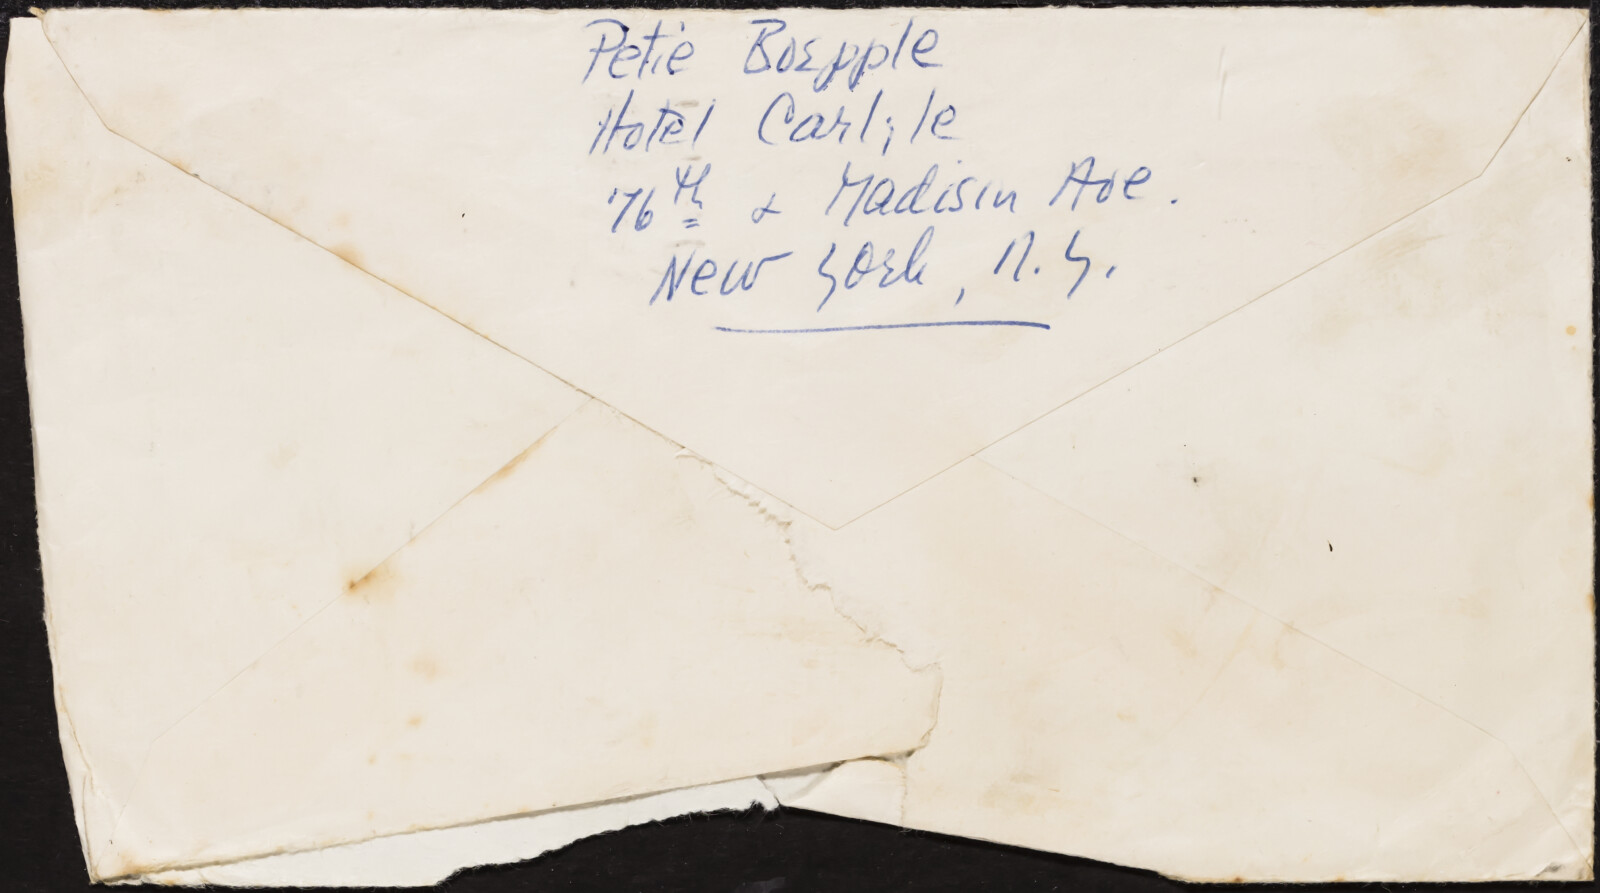 Petie Boepple
Hotel Carlyle
76th & Madison Ave.
New York, N.Y.